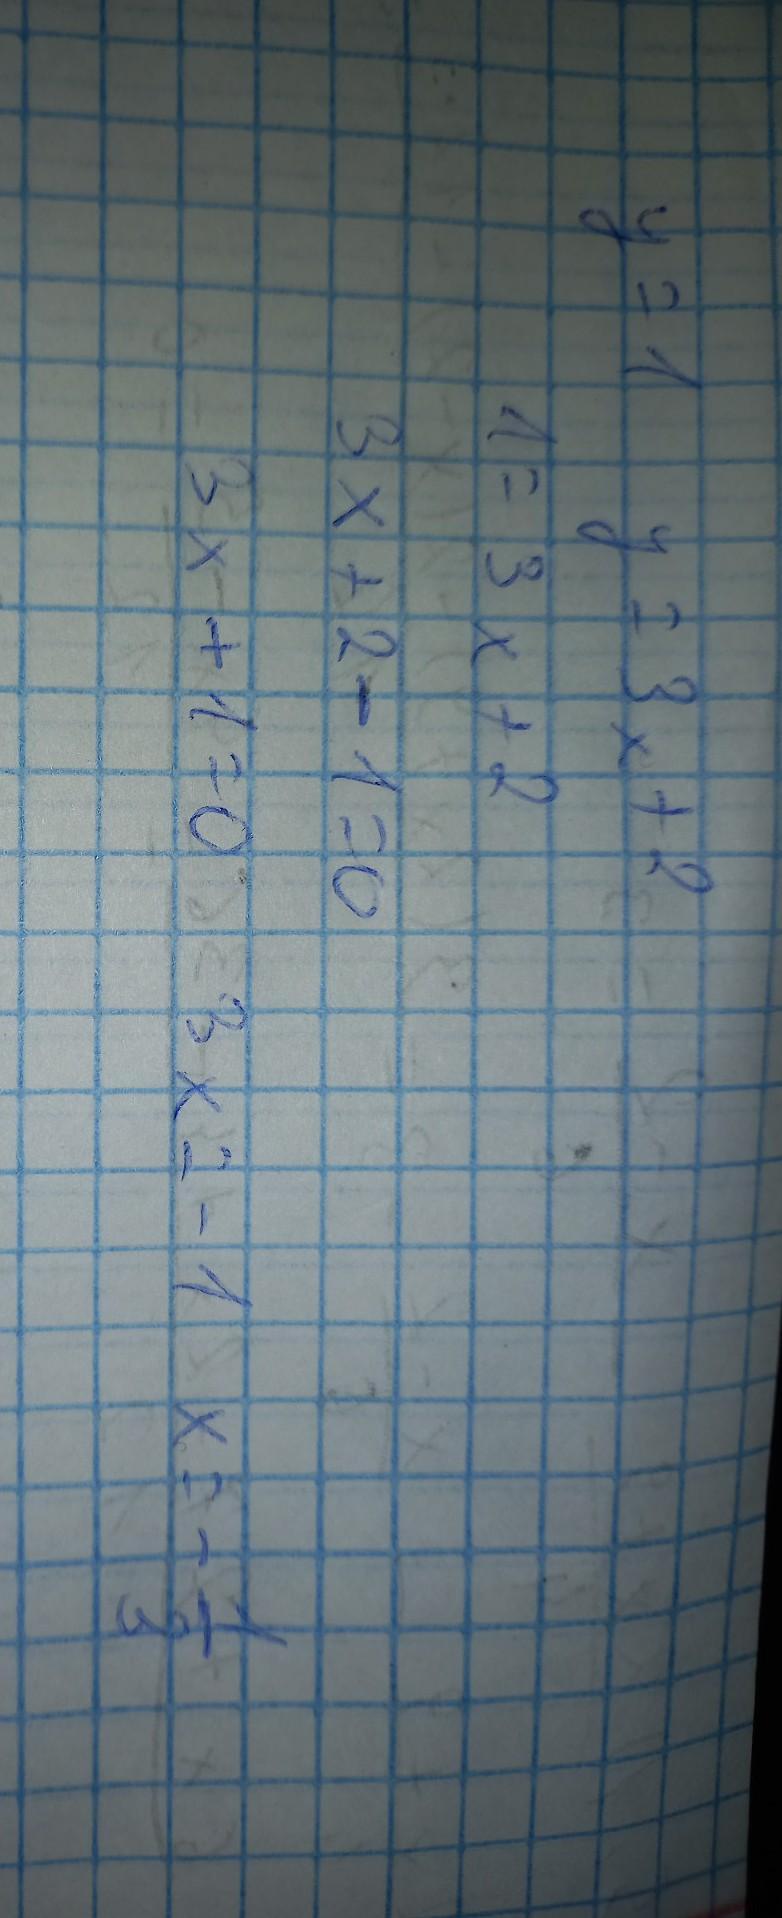 y = 1 y = 3x + 2
1 = 3x + 2
3x + 2 - 1 = 0
3x + 1 = 0 3x = -1 x = -1/3